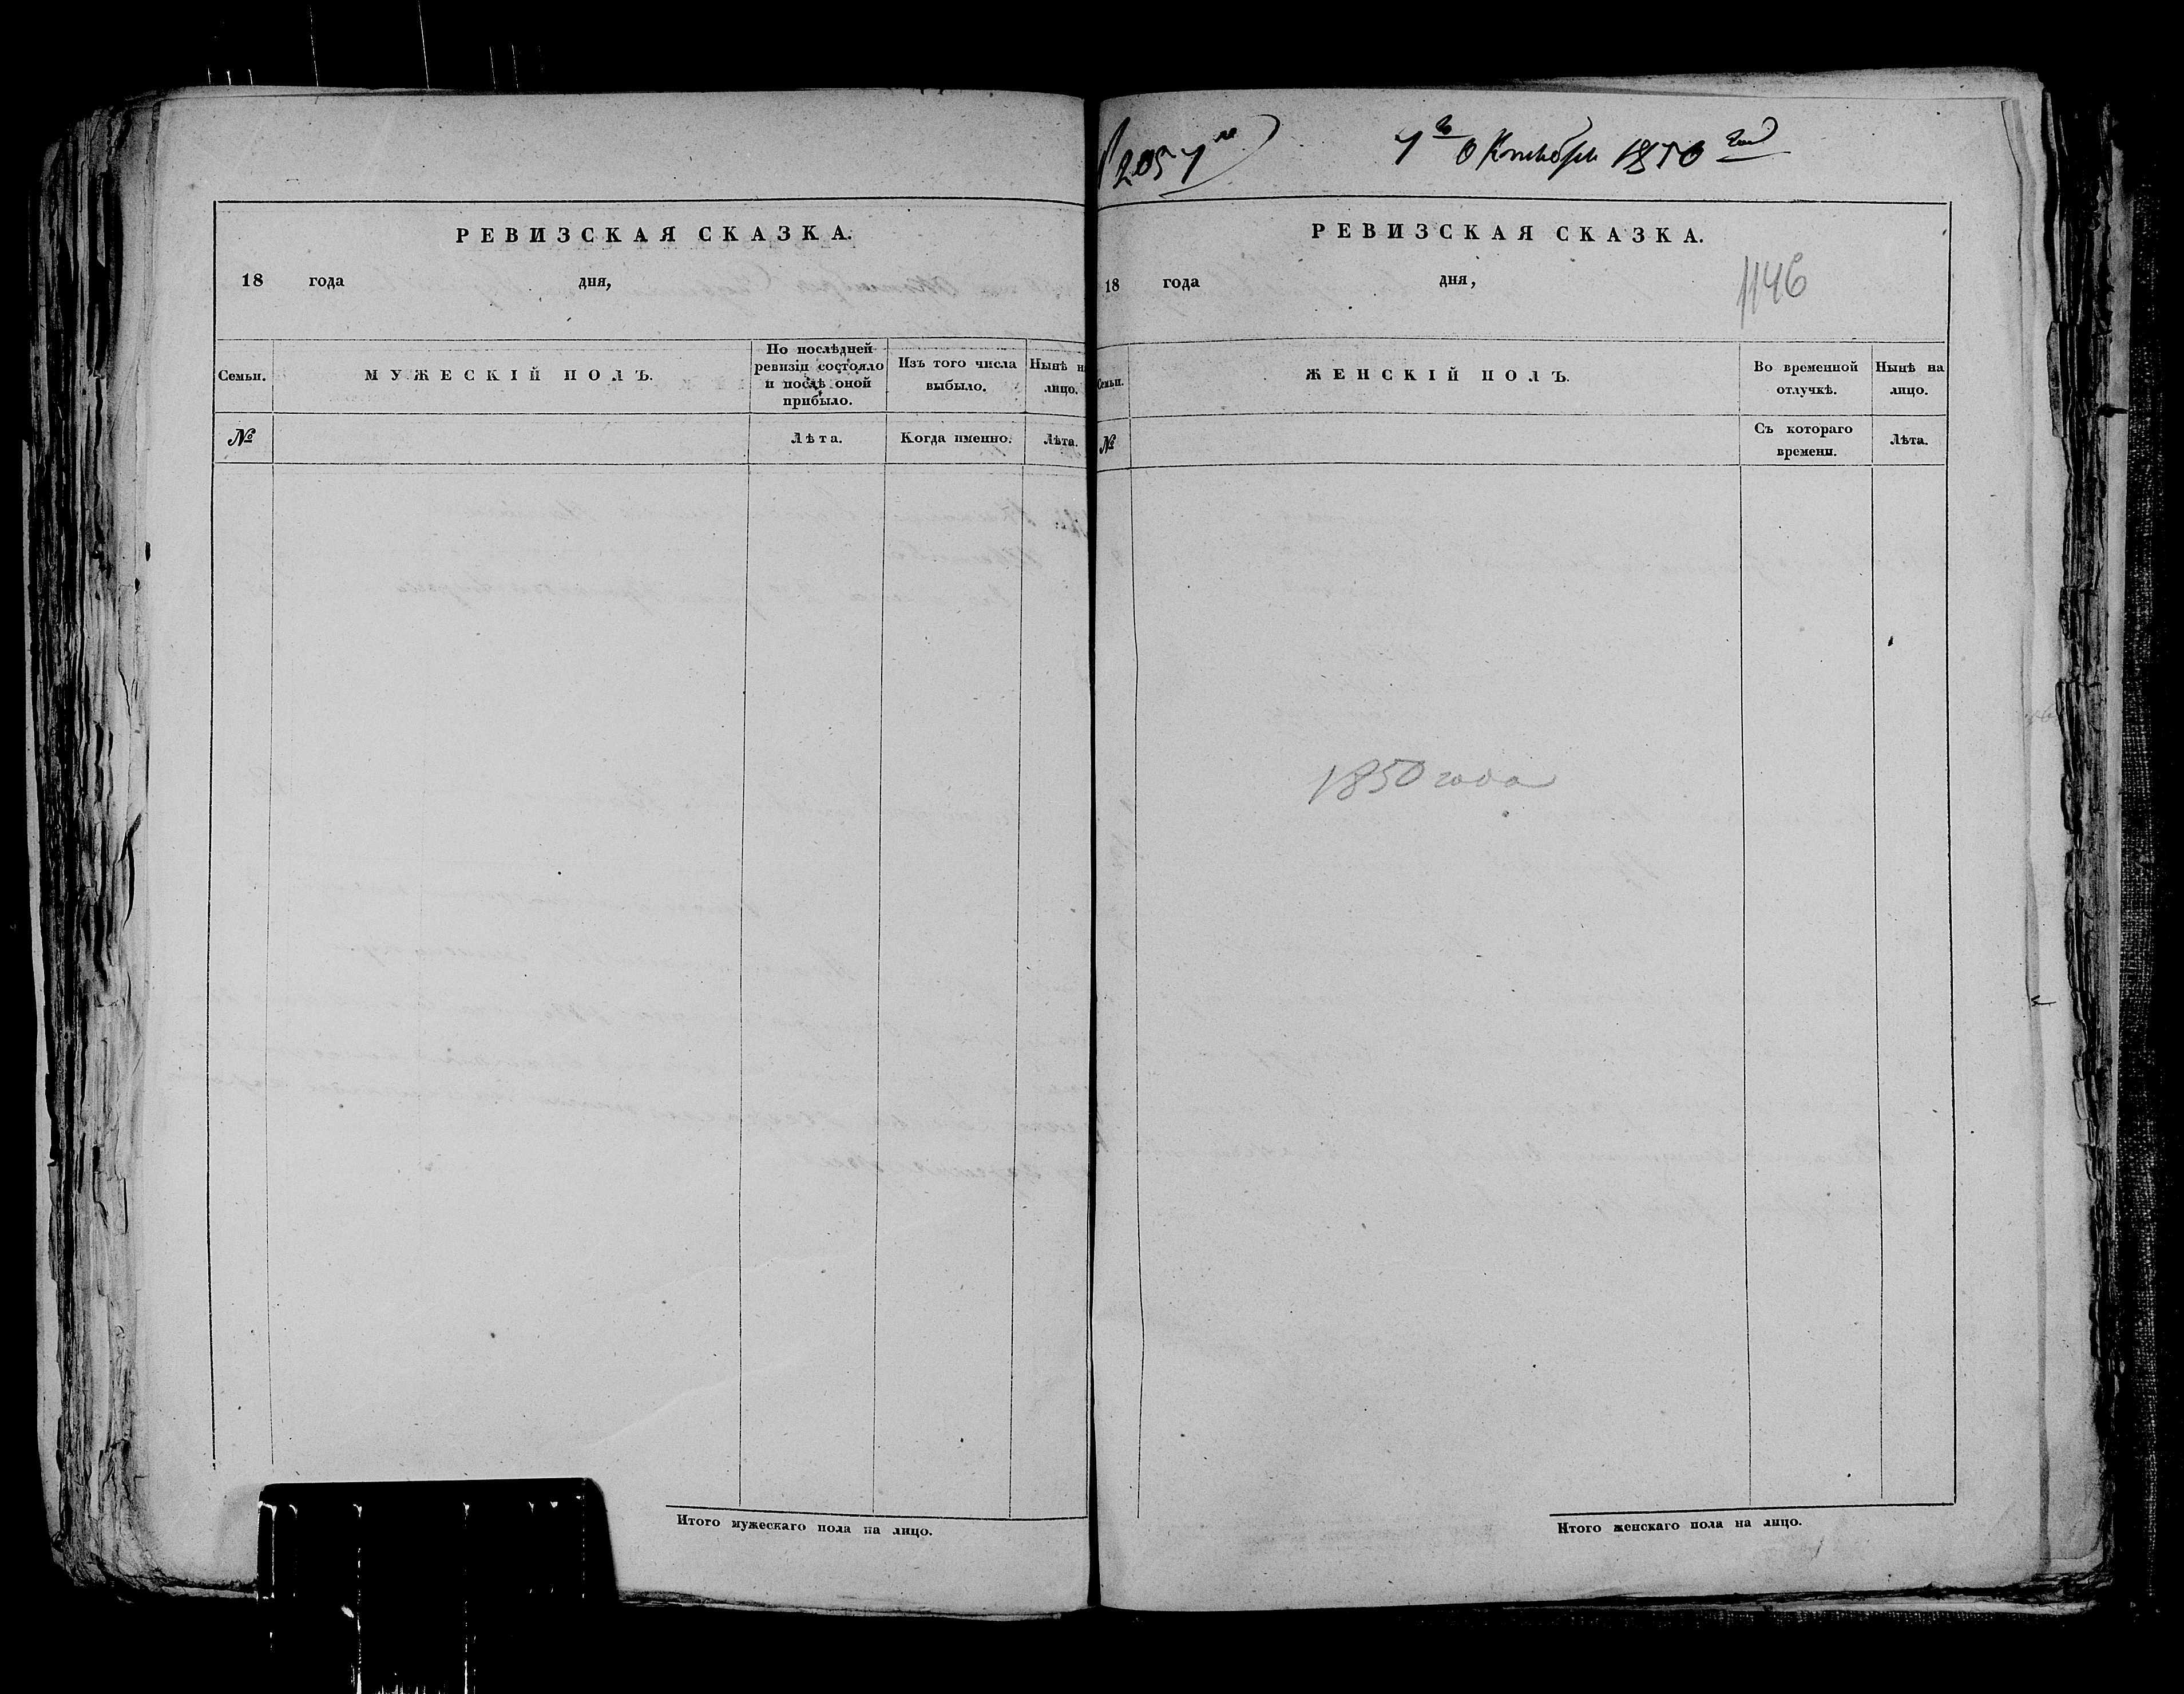 РЕВИЗСКАЯ СКАЗКА.
18 года дня,
Семьи.
МУЖЕСКІЙ ПОЛЪ.
По послѣдней
ревизіи состояло
и послѣ оной
прибыло.
Изъ того числа
выбыло.
Нынѣ на
лицо.
№
Лѣта.
Когда именно.
Лѣта.
Итого мужескаго пола на лицо.
7го Октября 1850 год
РЕВИЗСКАЯ СКАЗКА.
18 года дня,
1146
Семьи.
ЖЕНСКІЙ ПОЛЪ.
Во временной
отлучкѣ.
Нынѣ на
лицо.
№
Съ котораго
времени.
Лѣта.
1850 года
Итого женскаго пола на лицо.